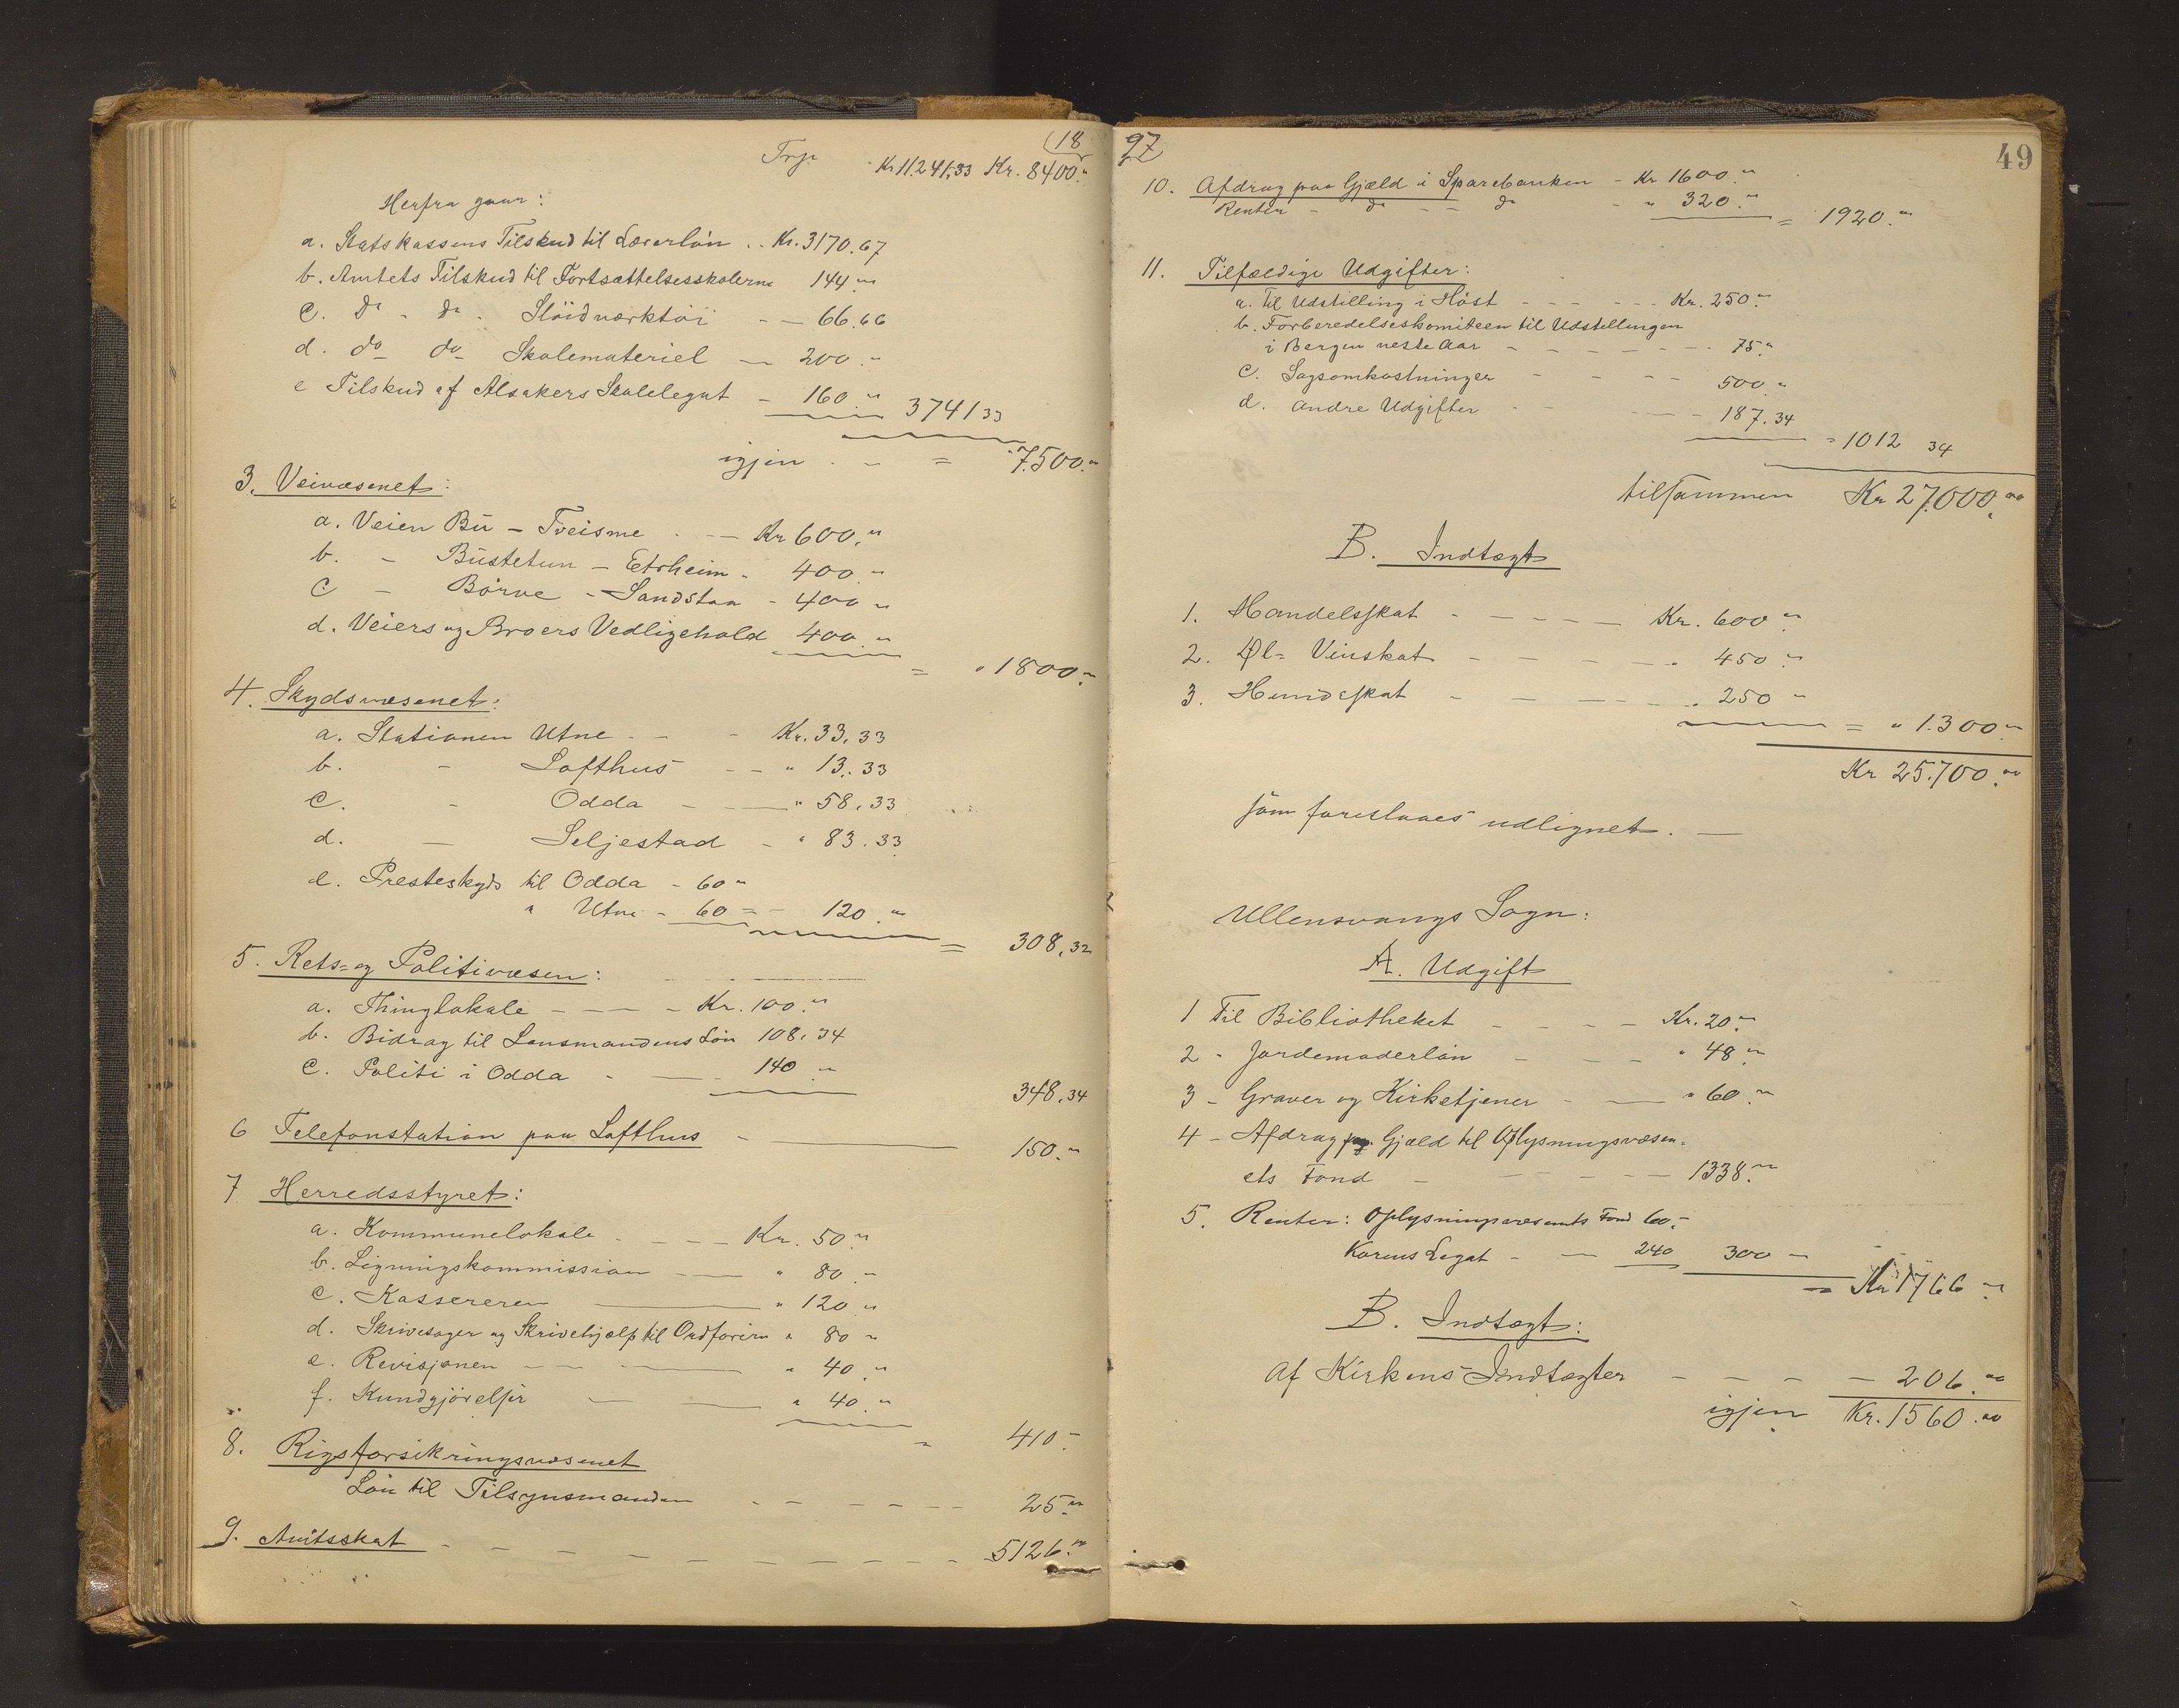 (18
Trp. Kr 11.241,33 Kr. 8400."
Herfra gaar:
a. Statskassens Tilskud til Lærerløn .. Kr. 3170.67
b. Amtets Tilskud til Fortsættelsesskolerne 144 "
c. do - do - Slöidværktöi - - 66.66
d. do do Skolemateriel - 200 "
e Tilskud af Alsakers Skolelegat - 160 " 3741 33
igjen . - = " 7.500."
3. Veivæsenet:
a. Veien Bu - Tveisme . - Kr 600."
b. - Bustetun - Etrheim - 400 "
c - Börve - Sandstøa - 400 "
d. Veiers og Broers Vedligehold 400 "
= " 1800."
4. Skydsvæsenet:
a. Stationen Utne - - - Kr. 33,33
b. - Lofthus - - " 13.33
c. - Odda - - " 58,33
d. - Seljestad - " 83.33
e. Presteskyds til Odda - 60 "
" Utne - 60 = - 120."
= 308,32
5. Rets- og Politivæsen:
a. Thinglokale - - - - Kr. 100."
b. Bidrag til Lensmandens Lön 108,34
c. Politi i Odda - - 140 "
348,34
6 Telefonstation paa Lofthus - 150."
7 Herredsstyret:
a. Kommunelokale - - - Kr. 50."
b. Ligningskommission - " 80 "
c. Kassereren - " 120 "
d. Skrivesager og Skrivehjælp til Ordføreren " 80 "
e. Revisjonen - - - " 40 "
f. Kundgjörelser - - " 40."
= 410 "
8. Rigsforsikringsvæsenet
Lön til Tilsynsmanden - - - - - - 25."
9. Amtsskat - - - - - - - - - - 5126."
97
49
10. Afdrag paa Gjæld i Sparebanken - Kr 1600."
Renter - do - - do - " 320."
= 1920."
11. Tilfældige Udgifter:
a. Til Udstilling i Höst - - - - - Kr. 250."
b. Forberedelseskomiteen til Udstillingen
i Bergen neste Aar - - - - - - 75."
c. Sagsomkostninger - - - - 500 "
d. Andre Udgifter - - - - 187.34
= 1012 34
tilsammen Kr 27.000."
B. Indtægt
1. Handelsskat - - - - - Kr. 600 "
2. Øl- Vinskat - - - - - " 450 "
3. Hundeskat - - - - - " 250 "
= " 1.300 "
Kr 25.700."
som foreslaaes udlignet. -
Ullensvangs Sogn:
A. Udgift
1 Til Bibliotheket - - - - Kr. 20."
2 - Jordemoderlön - - - " 48 "
3 - Graver og Kirketjener - - " 60."
4 - Afdrag paa Gjæld til Oplysningsvæsen-
ets Fond - - - - - 1338."
5. Renter: Oplysningsvæsenets Fond 60.-
Korens Legat - - 240 300 -
= Kr 1766 "
B. Indtægt:
Af Kirkens Indtægter - - - - 206."
igjen Kr. 1560."